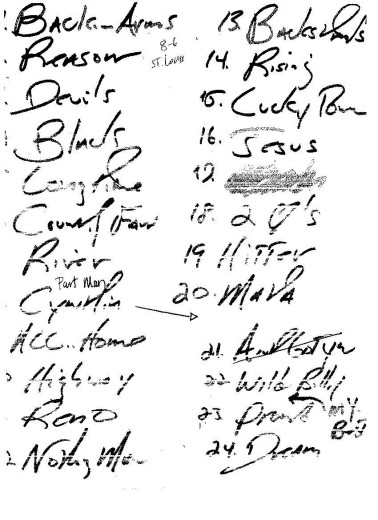 Back..Arms
Reason
8-6
St. Louis
Devils
Long Time
County Fair
River
Part Man
Cynthia
All..Home
Highway
Reno
Nothing Man
13. Backstreets
14. Rising
15. Lucky Town
16. Jesus
18. 2
19 Hitter
20. Maria
21.
22 Wild Billy
23
My
24. Dream